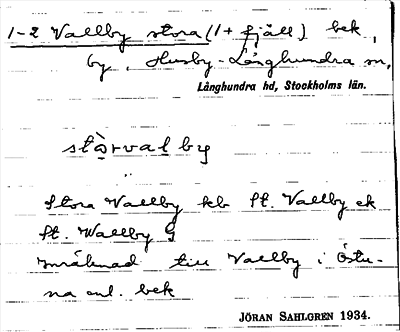 1-2 Vallby stora (1 + fjäll) bek,
by, Husby-Långhundra sn,
Långhundra hd, Stockholms län.
stòrvalby
Stora Vallby kb St. Vallby ek
St. Wallby G
inräknad till Vallby i Östu-
na enl. bek
JÖRAN SAHLGREN 1934.